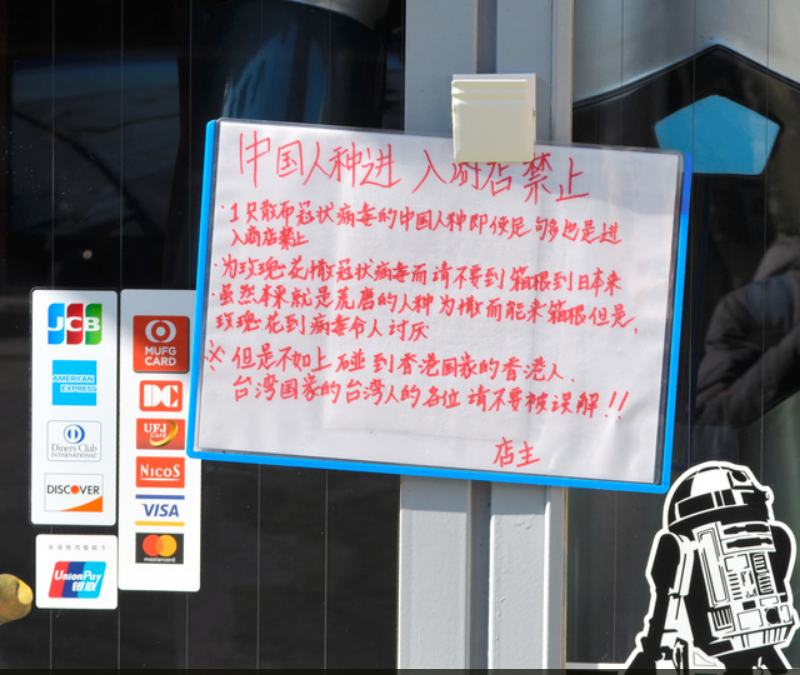 中国人种进 入商店禁止
・1只散布冠状病毒的中国人种即使足句多也是进
入商店禁止
・为玫瑰花懒冠状病毒而请不要到箱根到日本来
・虽然本来就是荒磨的人种为懒而能来箱根但是,
玫瑰花到病毒令人讨厌
※但是不如上碰到香港国家的香港人、
台湾国家的台湾人的各位请不要被误解!!
店主
JCB
AMERICAN
EXPRESS
Diners Club
INTERNATIONAL
DISCOVER
UnionPay
银联
MUFG
CARD
DC
UFJ
Card
NICOS
VISA
mastercard